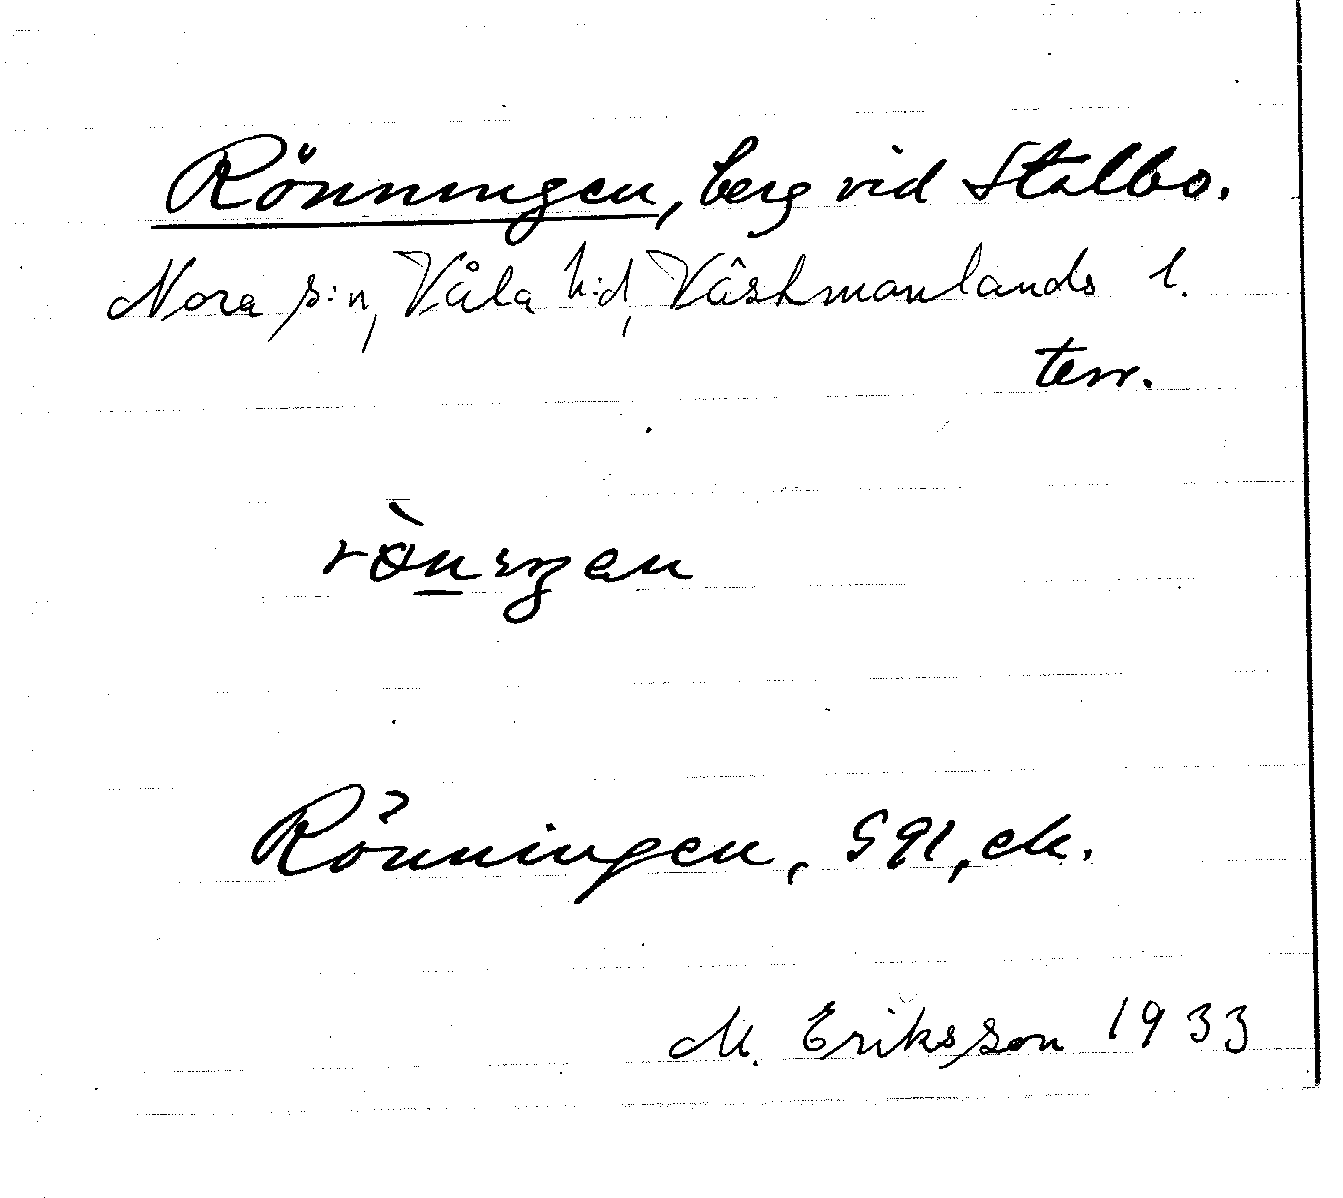 Rönningen, berg vid Stalbo.
Nora s:n, Våla h:d, Västmanlands l.
terr.
Rönningen, S 91, ek.
M. Eriksson 1933